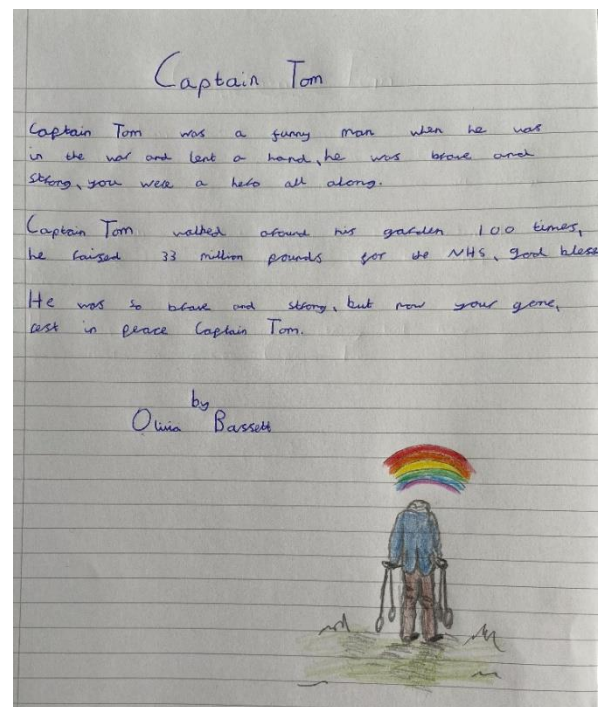 Captain Tom
Captain Tom was a funny man when he was
in the war and lent a hand, he was brave and
strong, you were a hero all along.
Captain Tom walked around his garden 100 times,
he raised 33 million pounds for the NHS, god bless
He was so brave and strong, but now your gone,
rest in peace Captain Tom.
by
Olivia Bassett